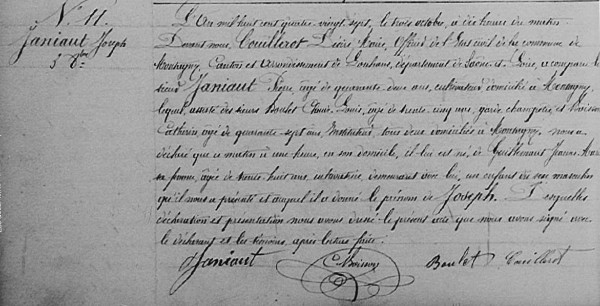 N.º 11.
Janiaut Joseph
3 8bre
L'An mil huit cent quatre-vingt-sept, le trois octobre, à dix heures du matin
Devant nous, Couillerot Maire, Officier de l'Etat civil de la commune de
Montagny, Canton et Arrondissement de Louhans, département de Saône-et-Loire, a comparu le
sieur Janiaut Pierre, âgé de quarante deux ans, cultivateur domicilié à Montagny,
lequel, assisté des sieurs Boulet Louis, âgé de trente-cinq ans, garde champêtre, et Boisson
âgé de quarante-sept ans, Instituteur, tous deux domiciliés à Montagny, nous a
déclaré que ce matin à une heure, en son domicile, il lui est né de Guillemaut Jeanne-Marie
sa femme, âgée de trente-huit ans, cultivatrice, demeurant avec lui, un enfant du sexe masculin
qu'il nous a présenté et auquel il a donné le prénom de Joseph. Desquelles
déclaration et présentation nous avons dressé le présent acte que nous avons signé avec
le déclarant et les témoins, après lecture faite.
Janiaut Boisson Boulet Couillerot